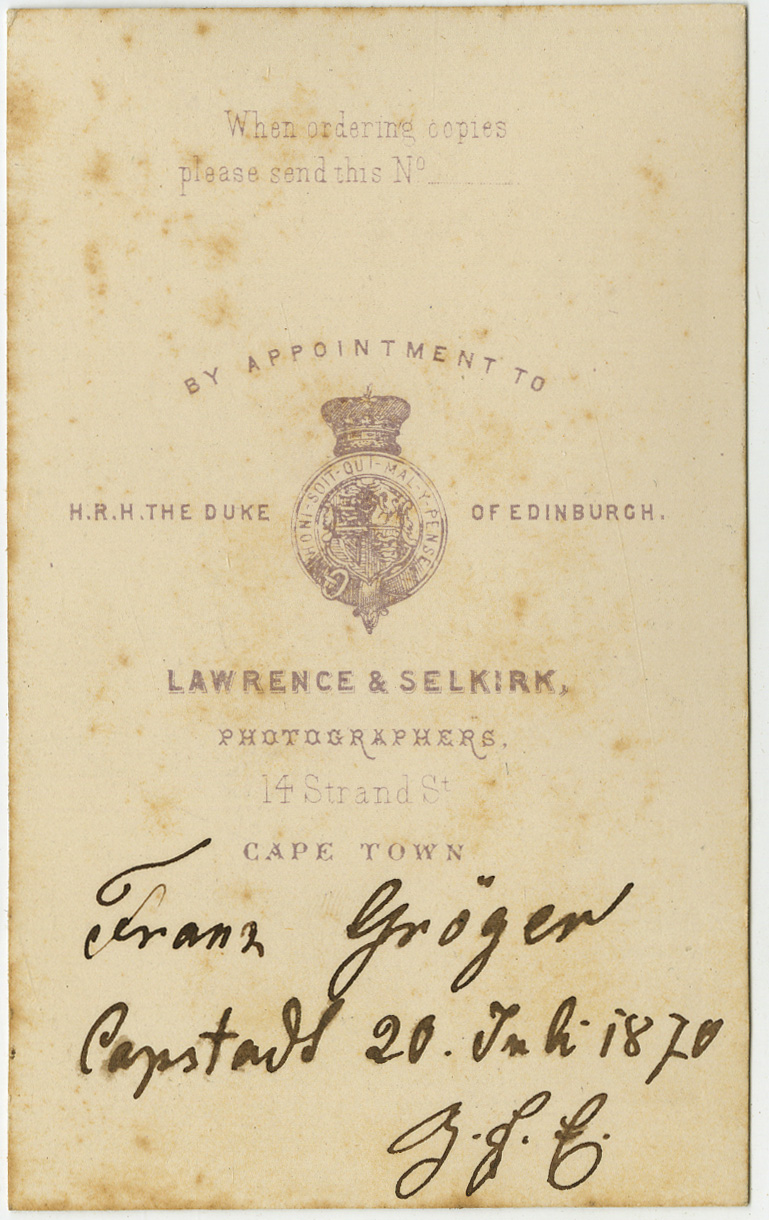 When ordering copies
please send this Nº
BY APPOINTMENT TO
HONI-SOIT-QUI-MAL-Y-PENSE
H.R.H. THE DUKE OF EDINBURGH.
LAWRENCE & SELKIRK,
PHOTOGRAPHERS.
14 Strand St
CAPE TOWN
Franz Gröger
Capstadt 20. Juli 1870